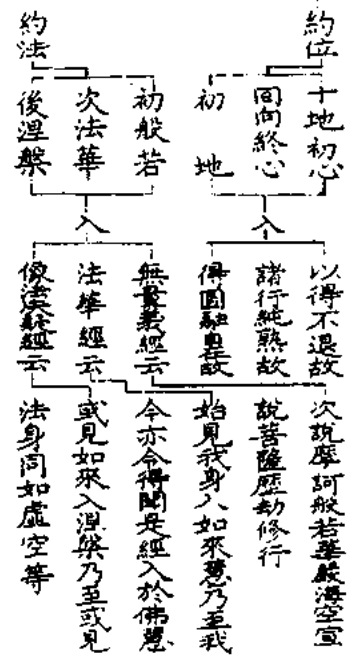 約位
十地初心
回向終心
初地
入
以得不退故
諸行純熟故
得圓融故
約法
初般若
次法華
後涅槃
入
無量義經云
法華經云
像法決疑經云
次說摩訶般若華嚴海空宣
說菩薩歷劫修行
始見我身入如來慧乃至我
今亦令得聞是經入於佛慧
或見如來入涅槃乃至或見
法身同如虛空等